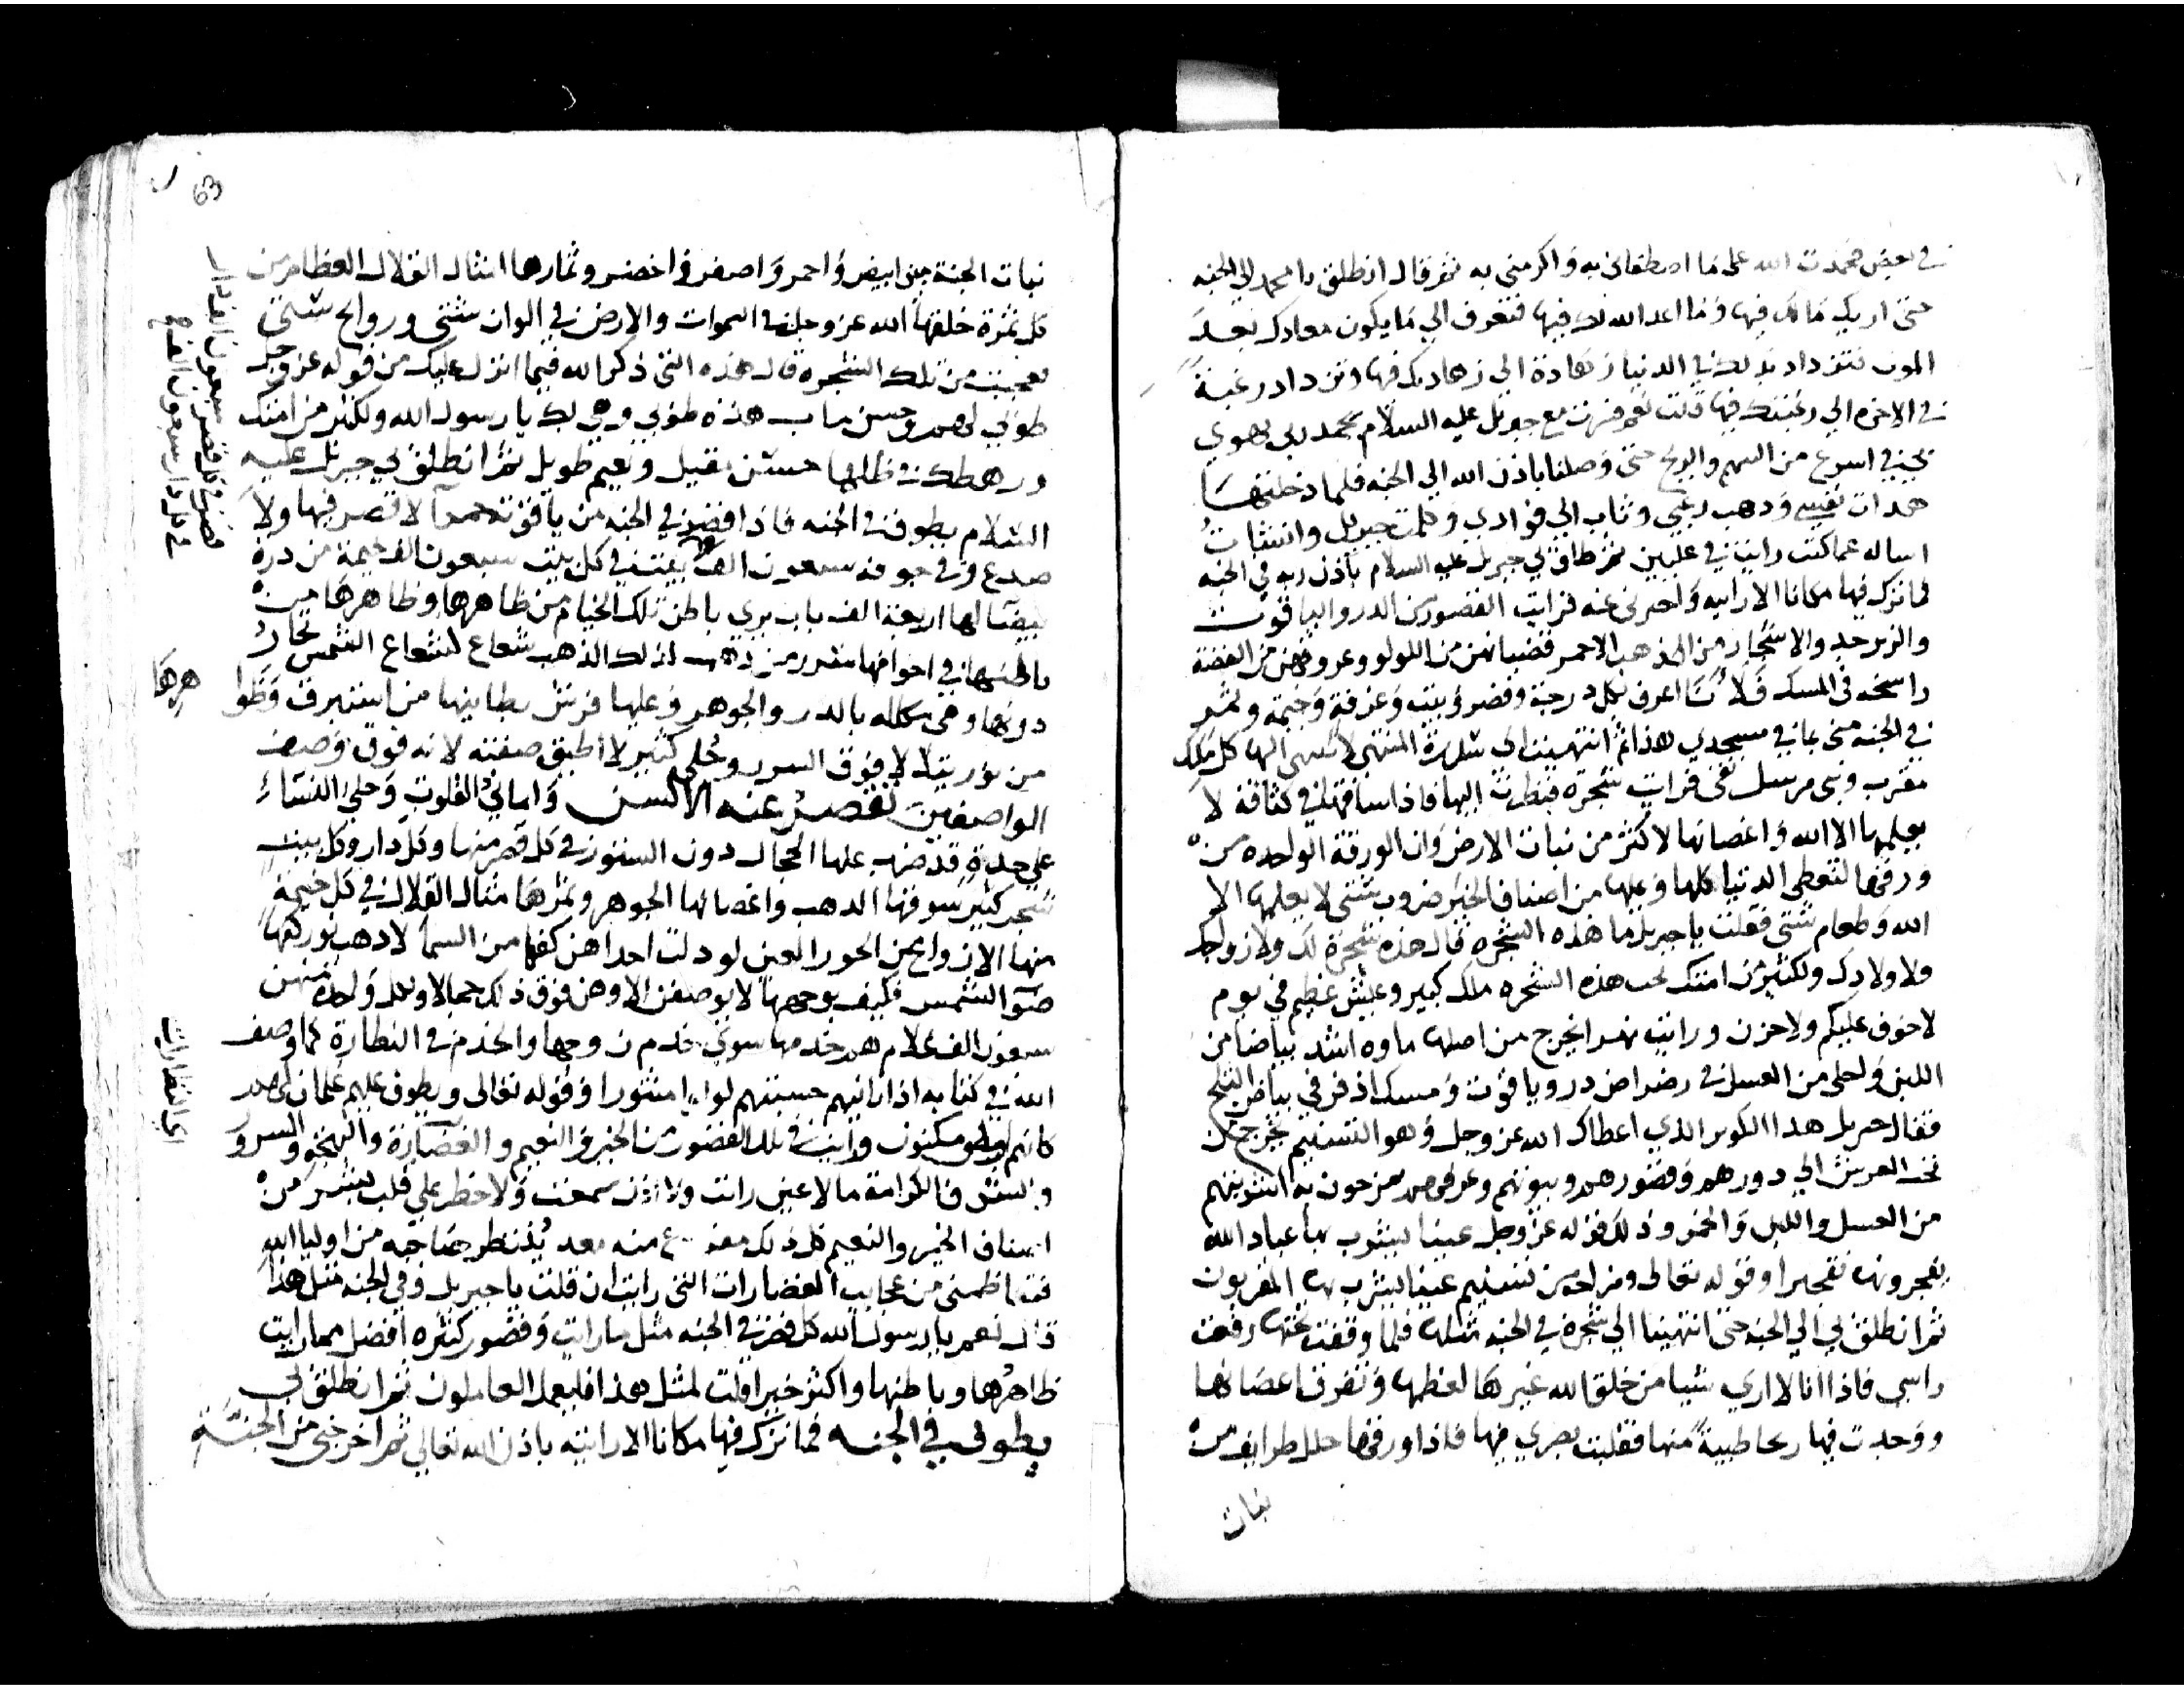 في بعض فحمدت الله على ما اصطفاني به واكرمني به ثم قال انطلق يا محمد الي الجنه
حتى اريك مالك فيها وما اعد الله لك فيها فتعرف الي ما يكون معادك بعد
الموت فتزداد بذلك في الدنيا زهادة الي زهادتك فيها وتزداد رغبة
في الاخره الي رغبتك فيها قلت نعم فسرت مع جبريل عليه السلام بحمد ربي يهوي
بي اسرع من السهم والريح حتى وصلنا باذن الله الي الجنه فلما دخلتها
هدات نفسي وذهب رعبي وثاب الي فؤادي وكلمت جبريل وانشات
اساله عما كنت رايت في عليين ثم طاف بي جبريل عليه السلام باذن ربه في الجنه
فما ترك فيها مكانا الا رانيه واخبرني عنه فرايت القصور من الدر والياقوت
والزبرجد والاشجار من الذهب الاحمر قضبانهن من اللولو وعروقهن من الفضة
راسخه في المسك فلانا اعرف بكل درجة وقصر وبيت وغرفة وخيمة وثمر
في الجنه مني بما في مسجدي هذا ثم انتهينا الى سدرة المنتهى لانتهى اليها كل ملك
مقرب ونبي مرسل فرايت شجرة فنظرت اليها فاذا ساقها في كثافة لا
يعلمها الا الله واغصانها لاكثر من نبات الارض وان الورقة الواحده من
ورقها لتغطي الدنيا كلها وعليها من اصناف الخير ضروب شتى لا يعلمها الا
الله وطعام شتى فقلت يا جبريل ما هذه الشجره قال هذه شجرة لك ولازواجك
ولاولادك ولكثير من امتك تحت هذه الشجره ملك كبير وعيش عظيم في يوم
لا خوف عليكم ولا حزن ورايت نهرا يخرج من اصلها ماوه اشد بياضا من
اللبن واحلى من العسل في رضراض در وياقوت ومسك اذفر في بياض الثلج
فقال جبريل هذا الكوثر الذي اعطاك الله عز وجل وهو التسنيم يخرج من
تحت العرش الي دورهم وقصورهم وبيوتهم وغرفهم يمزحون به اشربتهم
من العسل واللبن والخمر وذلك قوله عز وجل عينا يشرب بها عباد الله
يفجرونها تفجيرا وقوله تعالى ومزاجه من تسنيم عينا يشرب بها المقربون
ثم انطلق بي الي الجنه حتى انتهينا الي شجرة في الجنه مثلها فلما وقفت تحتها رفعت
راسي فاذا انا لا ارى شيا من خلق الله غيرها لعظمها وتفرق اغصانها
ووجدت فيها ريحا طيبة منها فقلبت بصري فيها فاذا ورقها حلل طرايف من
نبات
63
نبات الجنة بين ابيض واحمر واصفر واخضر وثمارها امثال القلال العظام من
كل ثمرة خلقها الله عز وجل في السموات والارض في الوان شتى وروايح شتى
فعجبت من تلك الشجره قال هذه التي ذكر الله فيما انزل عليك من قوله عز وجل
طوبي لهم وحسن ماب هذه طوبي وهي لك يا رسول الله ولكثير من امتك
ورهطك في ظلها حسن مقيل ونعيم طويل ثم انطلق بي جبريل عليه
السلام يطوف في الجنه فاذا قصر في الجنه من ياقوتة حمرا لا قصر فيها ولا
صدع وفي جوفه سبعون الف بيت في كل بيت سبعون الف خيمة من درة
بيضا لها اربعة الف باب يري باطن تلك الخيام من ظاهرها وظاهرها من
باطنها في اجوافها سرر من ذهب لذلك الذهب شعاع لشعاع الشمس تحار
دونها وهي مكلله بالدر والجوهر وعليها فرش بطاينها من استبرق وظوا
من نور يتلالا فوق السرر وحلي كثير لا اطيق صفته لانه فوق وصف
الواصفين تقصر عنه الالسن واماني القلوب وحلي النساء
علي حدة قد ضرب عليها الحجال دون الستور في كل قصر منها وكل دار وكل بيت
شجر كثير سوقها الذهب واغصانها الجوهر وثمرها مثال القلال في كل خيمة
منها الازواج من الحور العين لو دلت احداهن كفها من السما لاذهب نور كفها
ضوا الشمس فكيف بوجهها لا يوصفن الا وهن فوق ذلك جمالا ولكل واحدة منهن
سبعون الف غلام هم خدمها سوي خدم زوجها والخدم في النظارة كما وصف
الله في كتابه اذا رايتهم حسبتهم لولوا منثورا وقوله تعالى ويطوف عليهم غلمان لهم
كانهم لولو مكنون ورايت في تلك القصور من الخير والنعيم والغضارة والبهجة والسرور
والشرف والكرامة ما لا عين رات ولا اذن سمعت ولا خطر علي قلب بشر من
اصناف الخير والنعيم كل ذلك مفروغ منه معد ينتظر صاحبه من اوليا الله
فتعاظمني من عجايب الغضارات التي رايت ان قلت يا جبريل وفي الجنه مثل هذا
قال نعم يا رسول الله كل قصر في الجنه مثل ما رايت وقصور كثره افضل مما رايت
ظاهرها وباطنها واكثر خيرا قلت لمثل هذا فليعمل العاملون ثم انطلق بي
يطوف في الجنه فما ترك فيها مكانا الا رانيه باذن الله تعالى ثم اخرجني من الجنة
هرها